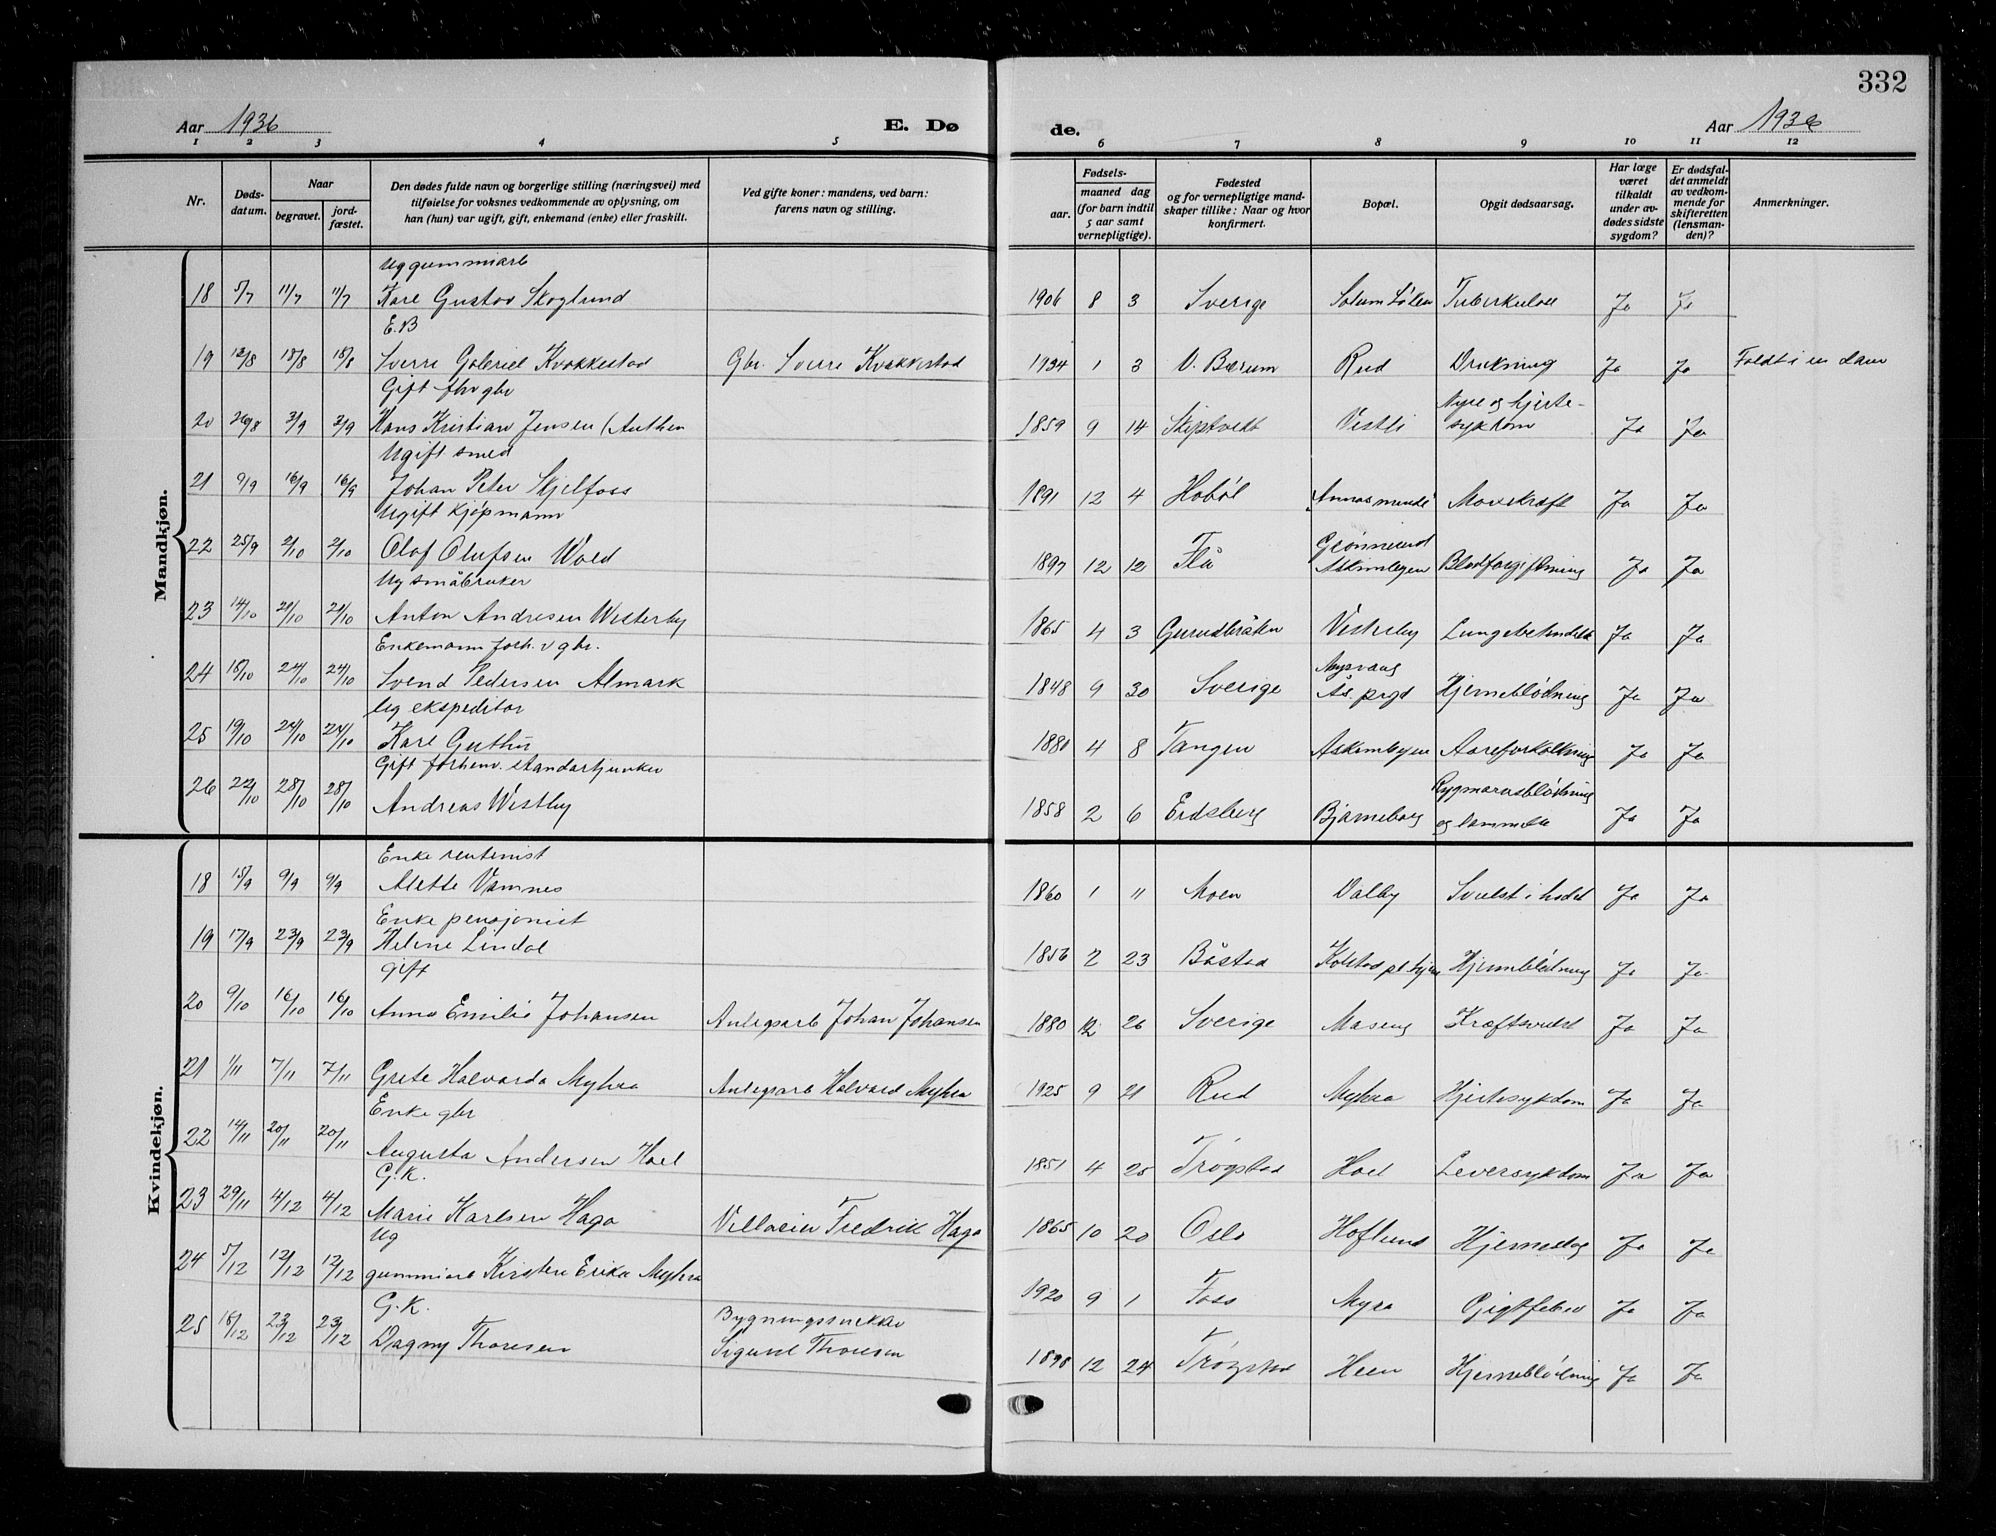 332
Aar 1936
E. Dø
de.
Aar 1936
1 2 3 4 5 6 7 8 9 10 11 12
Nr. Døds-datum. Naar begravet. jord-fæstet. Den dødes fulde navn og borgerlige stilling (næringsvei) med tilføielse for voksnes vedkommende av oplysning, om han (hun) var ugift, gift, enkemand (enke) eller fraskilt. Ved gifte koner: mandens, ved barn: farens navn og stilling. Fødsels- aar. maaned dag (for barn indtil 5 aar samt vernepligtige). Fødested og for vernepligtige mand-skaper tillike: Naar og hvor konfirmert. Bopæl. Opgit dødsaarsag. Har læge været tilkaldt under av-dødes sidste sygdom? Er dødsfal-det anmeldt av vedkom-mende for skifteretten (lensman-den)? Anmerkninger.
Mandkjøn.
Ug gummiarb
18 5/7 11/7 11/7 Karl Gustav Skoglund 1906 8 3 Sverige Solum Tuberkulose Ja Ja
E.B
19 12/8 18/8 18/8 Sverre Gabriel Kvakkestad Gbr. Sverre Kvakkestad 1934 1 3 V. Bærum Rud Drukning Ja Ja Faldt i en dam
Gift fhv gbr
20 3/9 3/9 Hans Kristian Jensen (Authen 1859 9 14 Skiptvedt Vestli Nyre og hjerte-sykdom Ja Ja
Ugift smed
21 9/9 16/9 16/9 Johan Peter Skjelfoss 1891 12 4 Hobøl Mavekræft Ja Ja
Ugift kjøpmann
22 25/9 2/10 2/10 Olaf Olufsen Wold 1897 12 12 Flå Grønnelund Askimbyen Blodforgiftning Ja Ja
Ug småbruker
23 14/10 21/10 21/10 Anton Andresen Westerby 1865 4 3 Vesterby Lungebetendelse Ja Ja
Enkemann forh. v gbr.
24 18/10 24/10 24/10 Svend Pedersen Almark 1848 9 30 Sverige Ås prgd Hjerneblødning Ja Ja
Ug ekspeditor
25 19/10 24/10 24/10 Karl 1880 4 8 Tangen Askimbyen Aareforkalkning Ja Ja
Gift forhenv. standartjunker
26 22/10 28/10 28/10 Andreas Westby 1858 2 6 Eidsberg Bjørneborg Rygmarvsblødning og lammelse Ja Ja
Kvindekjøn.
Enke rentenist
18 15/9 9/9 9/9 Alette Vamnes 1860 1 11 Moen Dalby Svulst i hodet Ja Ja
Enke pensjonist
19 17/9 23/9 23/9 Helene Lindal 1856 2 23 Båstad Kolstad pl.hjem Hjerneblødning Ja Ja
gift
20 9/10 16/10 16/10 Anna Emilie Johansen Anlegsarb Johan Johansen 1880 12 26 Sverige Maseng Kræftsvulst Ja Ja
21 1/11 7/11 7/11 Grete Halvarda Myhra Anlegsarb Halvard Myhra 1925 9 21 Rud Myhra Hjertesykdom Ja Ja
Enke gbr
22 14/11 20/11 20/11 Augusta Andersen Hoel 1851 4 25 Trøgstad Hoel Leversykdom Ja Ja
G.K.
23 29/11 4/12 4/12 Marie Karlsen Haga Villaeier Fredrik Haga 1865 10 20 Oslo Hoflund Hjerneslag Ja Ja
Ug
24 5/12 12/12 12/12 gummiarb Kirsten Erika Myhra 1920 9 1 Foss Myra Gigtfeber Ja Ja
G.K.
25 18/12 23/12 23/12 Dagny Thoresen Bygningssnekker Sigurd Thoresen 1898 12 24 Trøgstad Heen Hjerneblødning Ja Ja